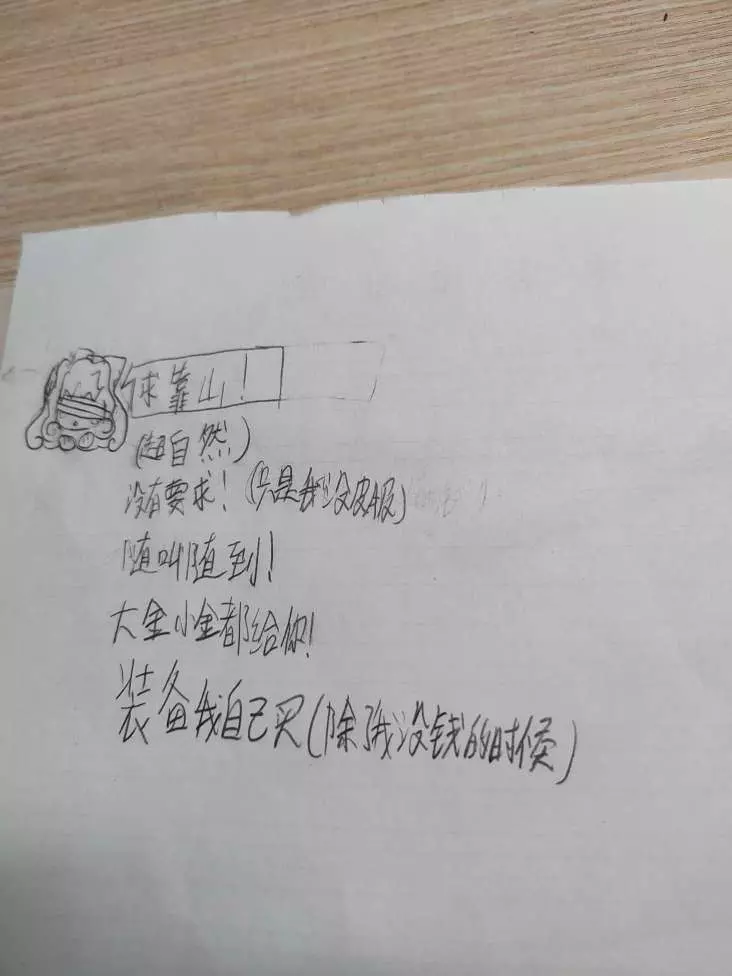 求靠山！
(超自然)
没有要求！(只是我没皮肤)
随叫随到！
大金小金都给你！
装备我自己买(除了我没钱的时候)